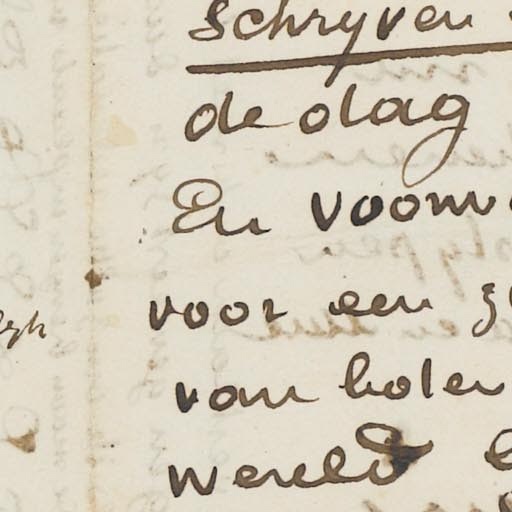 schryven
de dag
En voorw
voor een
van holen
wereld